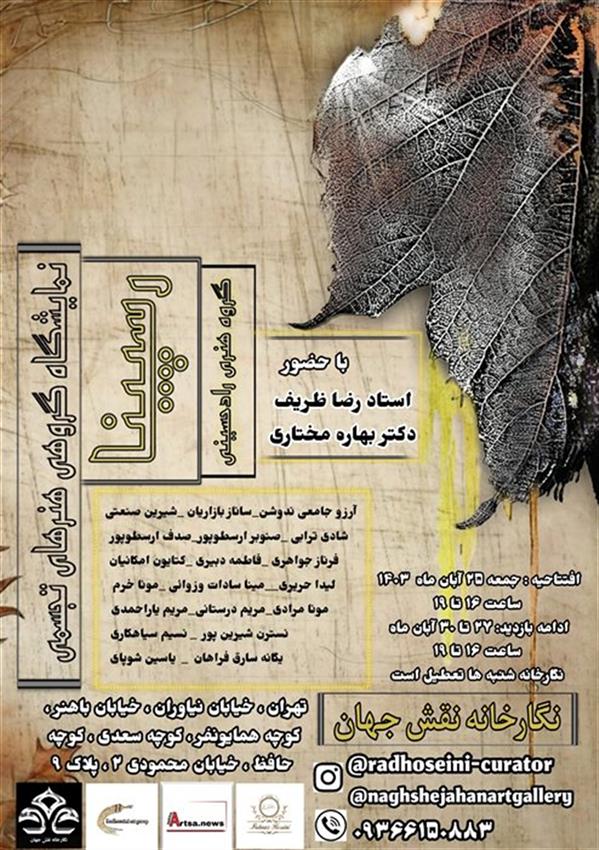 نمایشگاه گروهی هنرهای تجسمی
رسپینا
گروه هنری رادحسینی
با حضور
استاد رضا ظریف
دکتر بهاره مختاری
آرزو جامعی ندوشن_ساناز بازاریان _شیرین صنعتی
شادی ترابی _صنوبر ارسطوپور_صدف ارسطوپور
فرناز جواهری _فاطمه دبیری _کتایون امکانیان
لیدا حریری__مینا سادات وزوانی _مونا خرم
مونا مرادی_مریم درستانی_مریم یاراحمدی
نسترن شیرین پور _ نسیم سیاهکاری
یگانه سارق فراهان _ یاسین شوپای
افتتاحیه : جمعه ۲۵ آبان ماه ۱۴۰۳
ساعت ۱۶ تا ۱۹
ادامه بازدید: ۲۷ تا ۳۰ آبان ماه
ساعت ۱۶ تا ۱۹
نگارخانه شنبه ها تعطیل است
نگارخانه نقش جهان
تهران ، خیابان نیاوران ، خیابان باهنر،
کوچه همایونفر، کوچه سعدی ، کوچه
حافظ ، خیابان محمودی ۲ ، پلاک ۹
@radhoseini-curator
@naghshejahanartgallery
۰۹۳۶۶۱۵۰۸۸۳
نگارخانه نقش جهان
Artsa.news